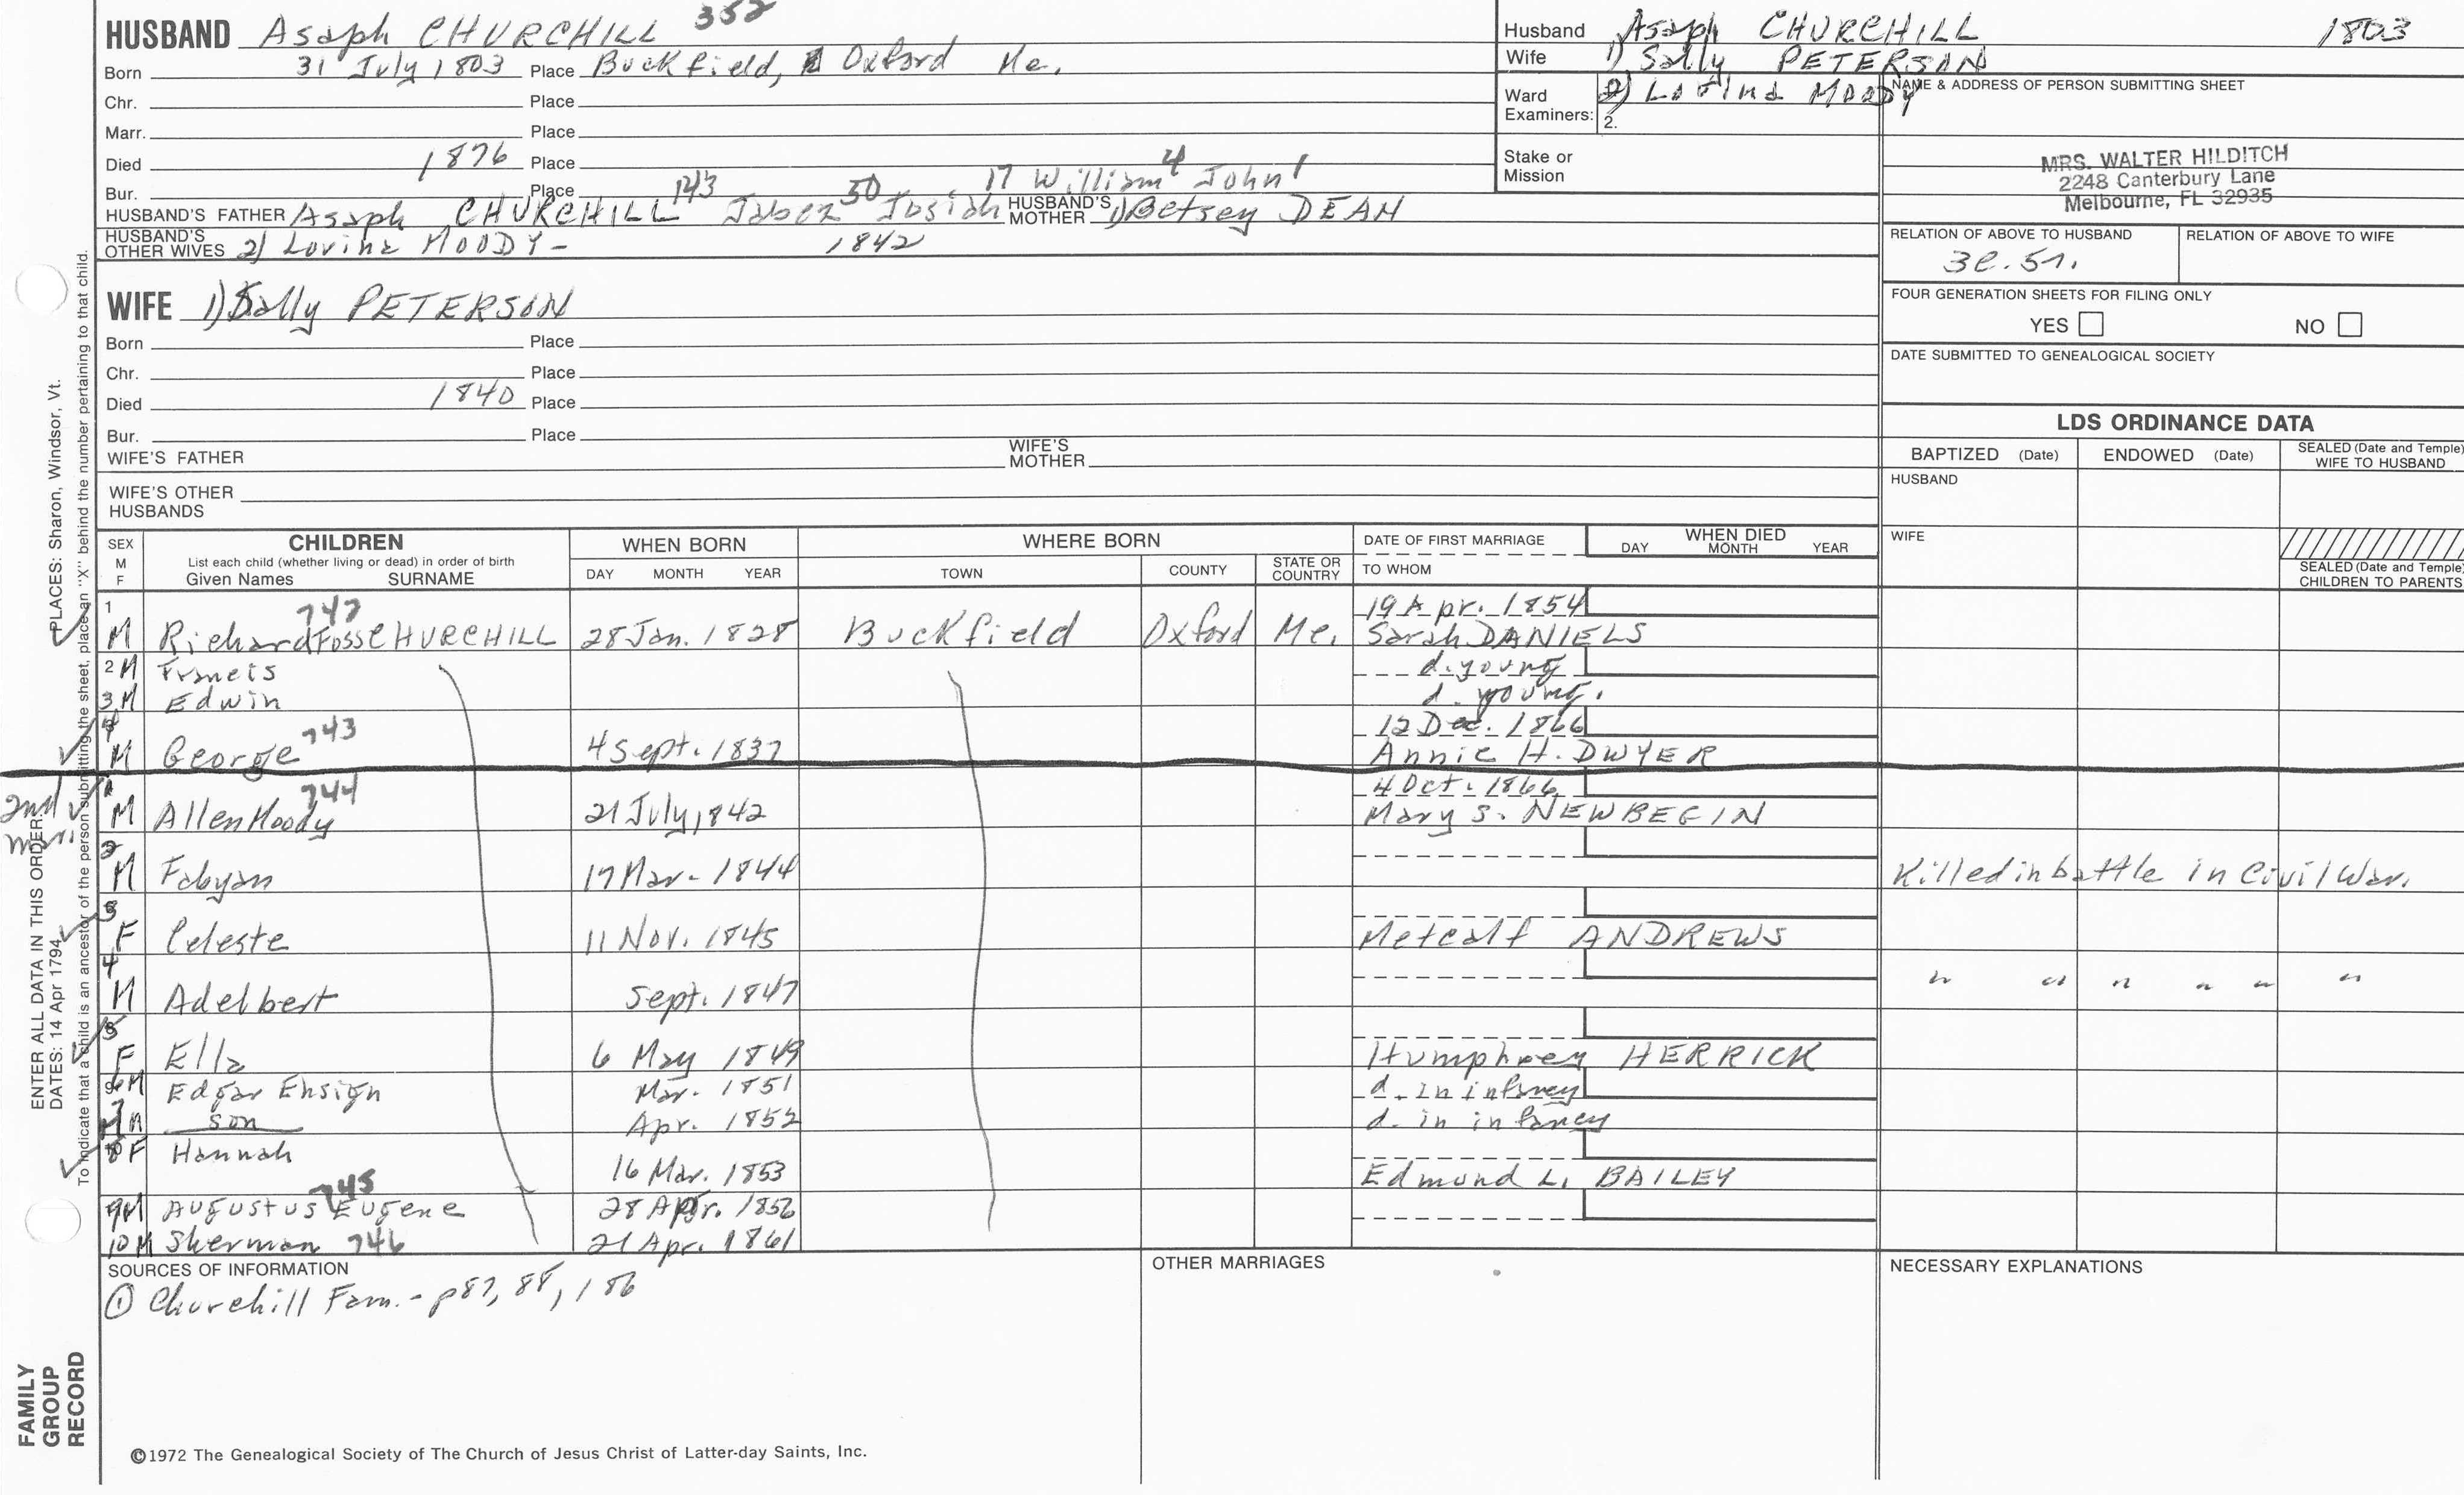 HUSBAND Asaph CHURCHILL 352
Born 31 July 1803 Place Buckfield, Oxford Me.
Chr. Place
Marr. Place
Died 1876 Place
Bur. Place
HUSBAND'S FATHER Asaph CHURCHILL 143 Jabez 50 Josiah 17 William 4 John 1 HUSBAND'S MOTHER 1) Betsey DEAN
HUSBAND'S OTHER WIVES 2) Lovina MOODY - 1842
WIFE 1) Sally PETERSON
Born Place
Chr. Place
Died 1840 Place
Bur. Place
WIFE'S FATHER WIFE'S MOTHER
WIFE'S OTHER HUSBANDS
Husband Asaph CHURCHILL 1803
Wife 1) Sally PETERSON
2) Lovina MOODY
Ward Examiners: 2.
Stake or Mission
NAME & ADDRESS OF PERSON SUBMITTING SHEET
MRS. WALTER HILDITCH
2248 Canterbury Lane
Melbourne, FL 32935
RELATION OF ABOVE TO HUSBAND RELATION OF ABOVE TO WIFE
FOUR GENERATION SHEETS FOR FILING ONLY
YES NO
DATE SUBMITTED TO GENEALOGICAL SOCIETY
LDS ORDINANCE DATA
BAPTIZED (Date) ENDOWED (Date) SEALED (Date and Temple) WIFE TO HUSBAND
HUSBAND
WIFE
SEALED (Date and Temple) CHILDREN TO PARENTS
SEX M F
CHILDREN
List each child (whether living or dead) in order of birth
Given Names SURNAME
WHEN BORN
DAY MONTH YEAR
WHERE BORN
TOWN COUNTY STATE OR COUNTRY
DATE OF FIRST MARRIAGE
TO WHOM
WHEN DIED
DAY MONTH YEAR
1 M Richard Foss CHURCHILL 747 28 Jan. 1828 Buckfield Oxford Me. 19 Apr. 1854
Sarah DANIELS
2 M Francis d. young
3 M Edwin d. young.
4 M George 743 4 Sept. 1837 12 Dec. 1866
Annie H. DWYER
2nd mar.
1 M Allen Moody 744 21 July, 1842 4 Oct. 1866
Mary S. NEWBEGIN
2 M Fabyan 17 Mar. 1844 Killed in battle in Civil War.
3 F Celeste 11 Nov. 1845 Metcalf ANDREWS
4 M Adelbert Sept. 1847 " " " " " "
5 F Ella 6 May 1849 Humphrey HERRICK
6 M Edgar Ensign Mar. 1851 d. in infancy
7 M son Apr. 1852 d. in infancy
8 F Hannah 16 Mar. 1853 Edmund L. BAILEY
9 M Augustus Eugene 745 28 Apr. 1856
10 M Sherman 746 21 Apr. 1861
SOURCES OF INFORMATION
① Churchill Fam. - p87, 88, 186
OTHER MARRIAGES
NECESSARY EXPLANATIONS
©1972 The Genealogical Society of The Church of Jesus Christ of Latter-day Saints, Inc.
FAMILY GROUP RECORD
ENTER ALL DATA IN THIS ORDER:
DATES: 14 Apr 1794
PLACES: Sharon, Windsor, Vt.
To indicate that a child is an ancestor of the person submitting the sheet, place an "X" behind the number pertaining to that child.